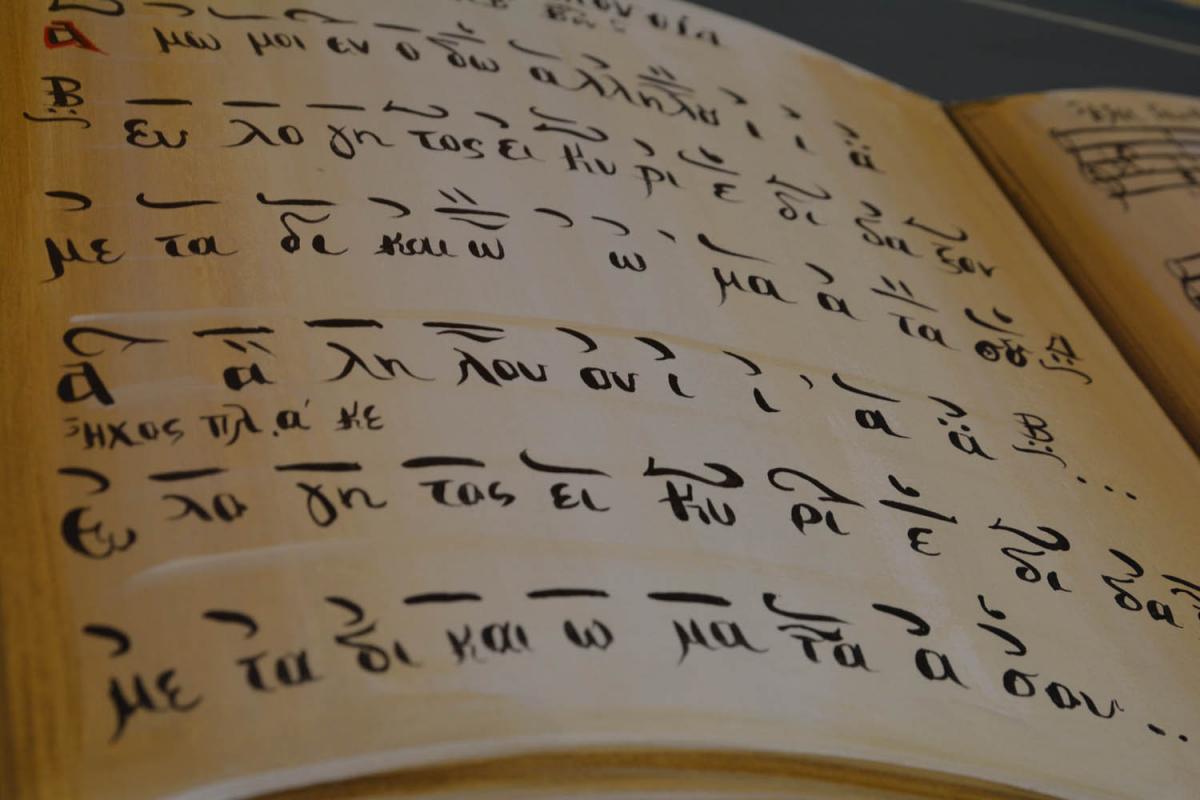 α μω μοι εν ο δω α λλη λου ι ι α
ευ λο γη τος ει Κυ ρι ε δι δα ξον
με τα δι και ω ω μα α τα σȣ
α α λη λου ου ι ι α α
Ἦχος πλ. α΄ κε
Ευ λο γη τος ει Κυ ρι ε δι δα
με τα δι και ω μα τα α σου ..